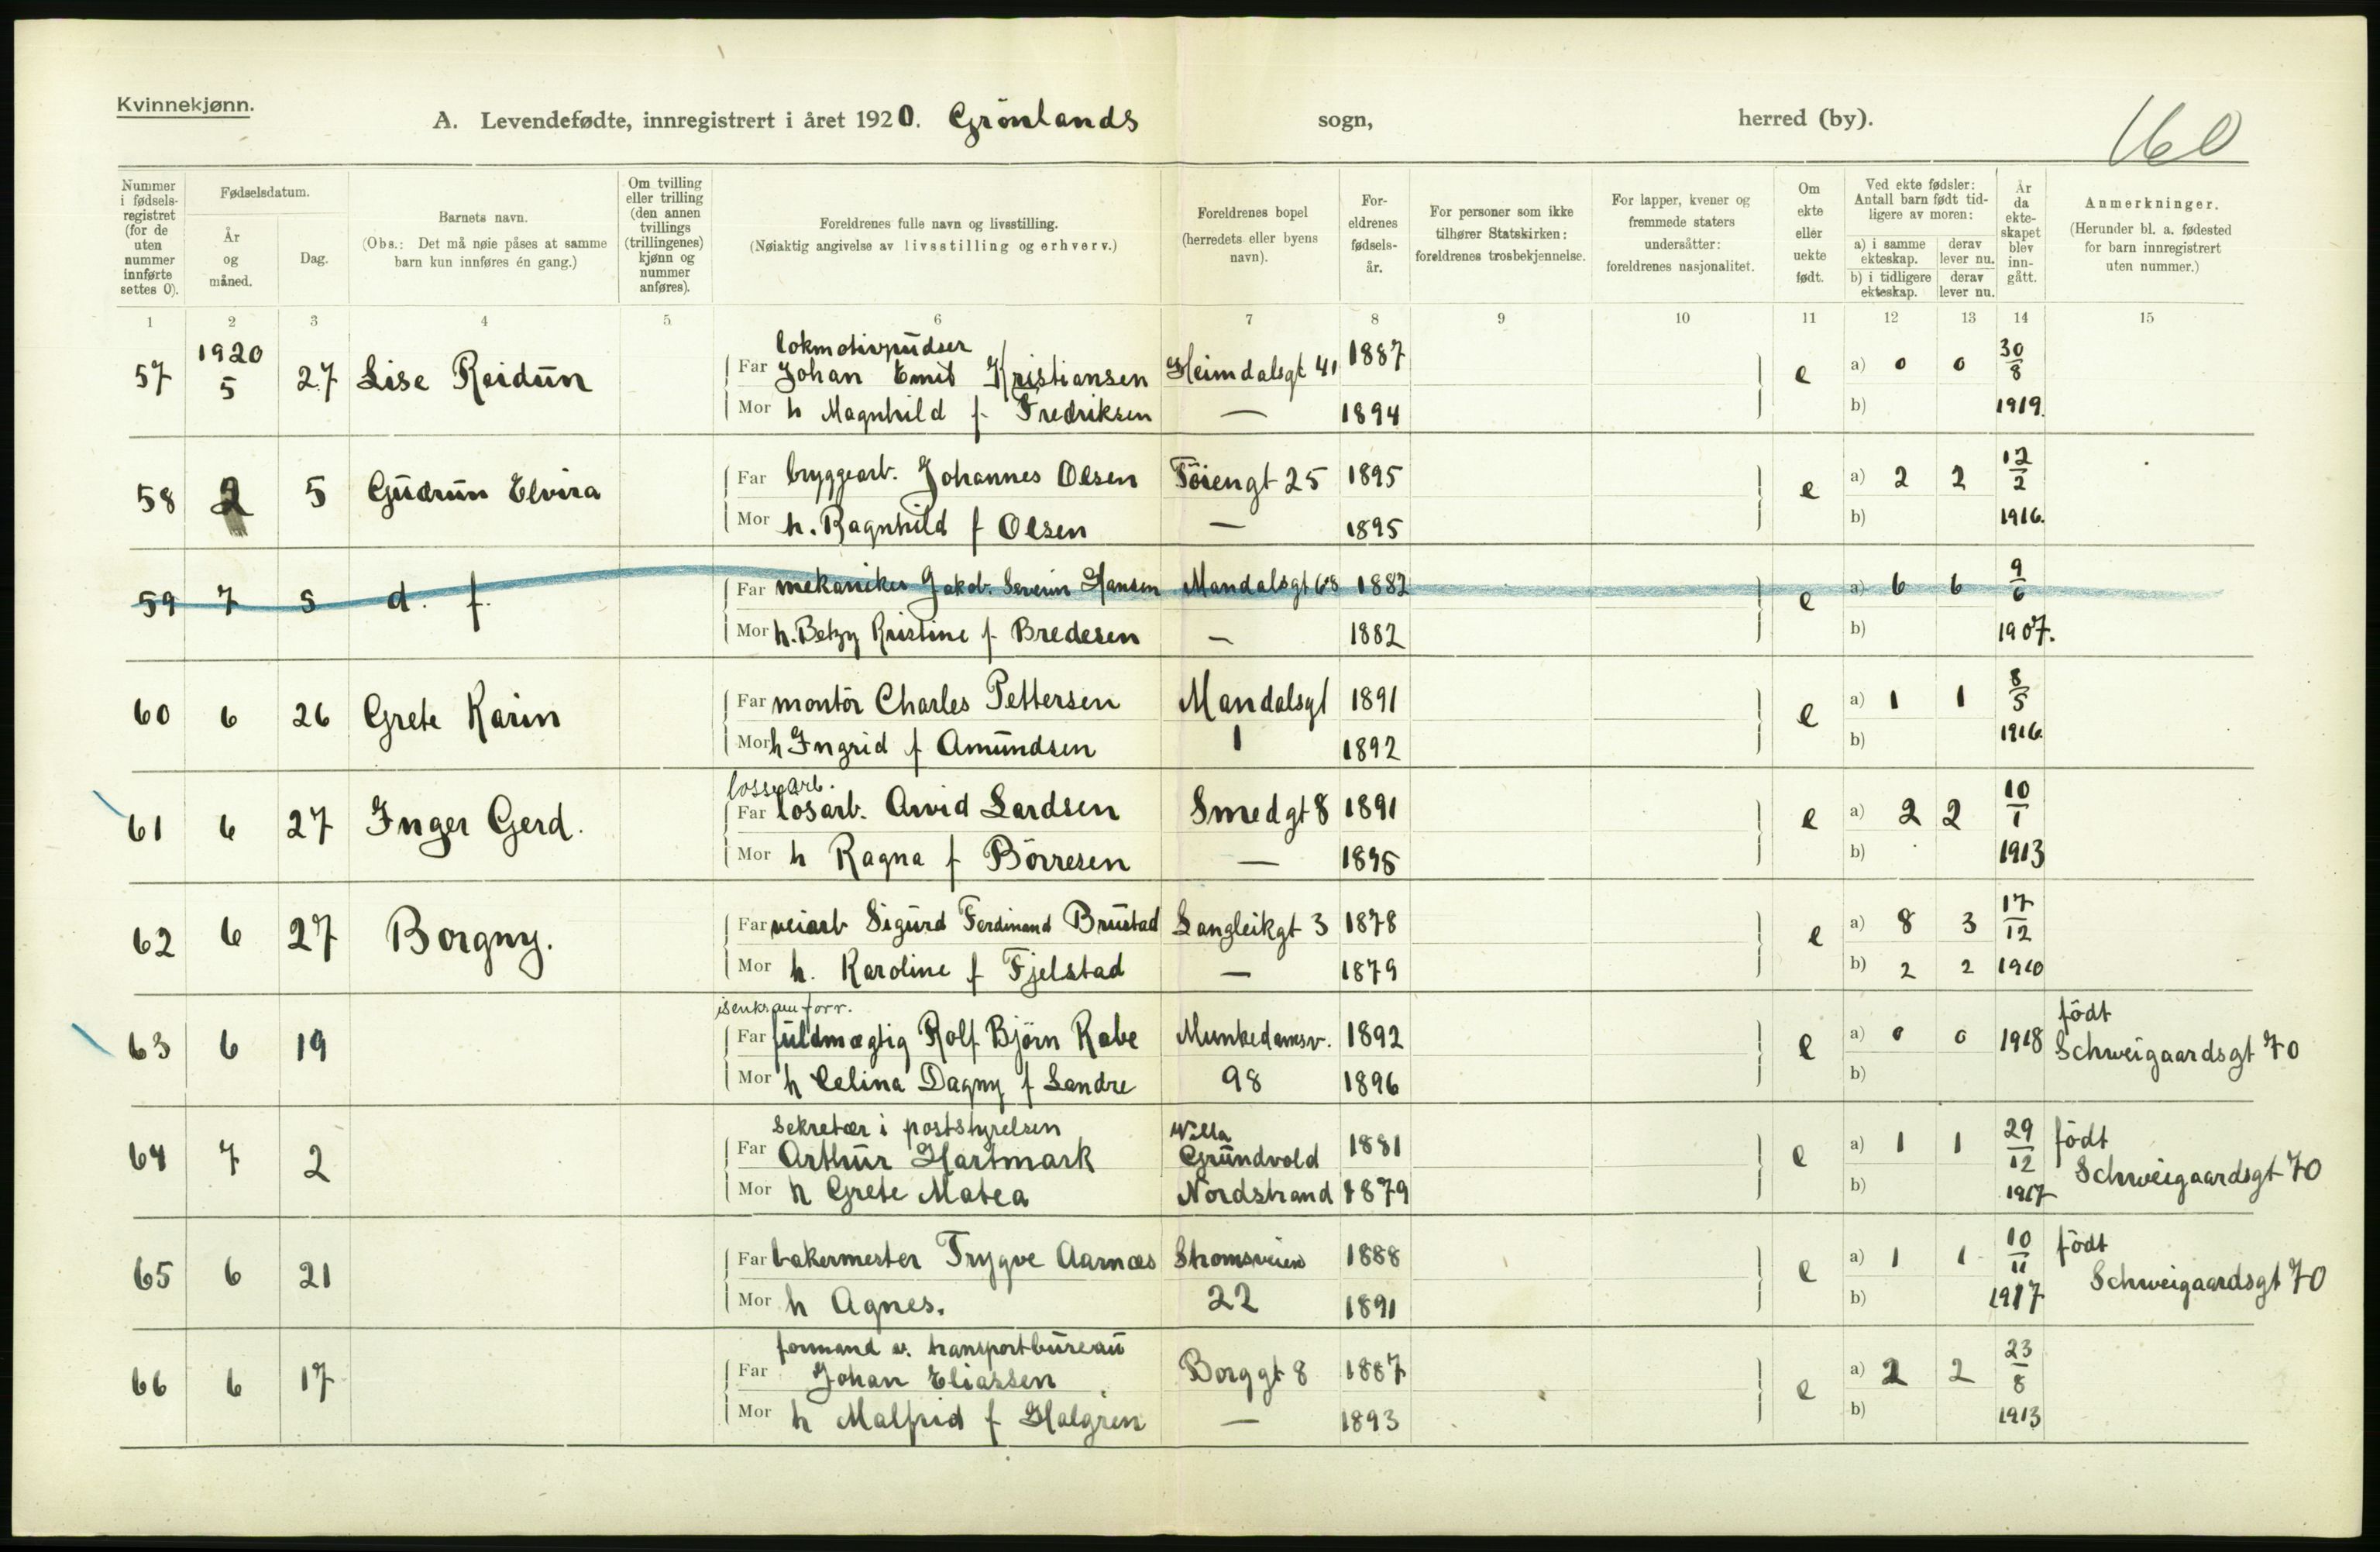 Kvinnekjønn.
A. Levendefødte, innregistrert i året 1920. Grönlands sogn, herred (by). 160
Nummer i fødsels-registret (for de uten nummer innførte settes 0).
Fødselsdatum.
År og måned.
Dag.
Barnets navn.
(Obs.: Det må nøie påses at samme barn kun innføres én gang.)
Om tvilling eller trilling (den annen tvillings (trillingenes) kjønn og nummer anføres).
Foreldrenes fulle navn og livsstilling.
(Nøiaktig angivelse av livsstilling og erhverv.)
Foreldrenes bopel (herredets eller byens navn).
For-eldrenes fødsels-år.
For personer som ikke tilhører Statskirken: foreldrenes trosbekjennelse.
For lapper, kvener og fremmede staters undersåtter: foreldrenes nasjonalitet.
Om ekte eller uekte født.
Ved ekte fødsler: Antall barn født tid-ligere av moren:
a) i samme ekteskap. derav lever nu.
b) i tidligere ekteskap. derav lever nu.
År da ekte-skapet blev inn-gått.
Anmerkninger.
(Herunder bl. a. fødested for barn innregistrert uten nummer.)
1 2 3 4 5 6 7 8 9 10 11 12 13 14 15
1920 lokmotivpudser
57 5 27 Lise Reidun Far Johan Emil Kristiansen Heimdalsgt 41 1887 e a) 0 0 30/8
Mor h Magnhild f. Fredriksen — 1894 b) 1919.
58 2 5 Gudrun Elvira Far bryggearb. Johannes Olsen Töiengt 25 1895 e a) 2 2 12/2
Mor h. Ragnhild f Olsen — 1895 b) 1916.
59 7 5 d. f. Far mekaniker Jakob Severin Hansen Mandalsgt 68 1882 e a) 6 6 9/6
Mor h. Betzy Kristine f. Bredesen — 1882 b) 1907.
60 6 26 Grete Karin Far montör Charles Pettersen Mandalsgt 1891 e a) 1 1 8/5
Mor h Ingrid f Amundsen 1 1892 b) 1916.
lossearb.
61 6 27 Inger Gerd. Far losarb. Arvid Lardsen Smedgt 8 1891 e a) 2 2 10/1
Mor h Ragna f Börresen — 1895 b) 1913
62 6 27 Borgny. Far veiarb Sigurd Ferdinand Brustad Langleikgt 3 1878 e a) 8 3 17/12
Mor h. Karoline f Fjelstad — 1879 b) 2 2 1910
isenkramforr. födt
63 6 19 Far fuldmægtig Rolf Björn Rabe Munkedamsv. 1892 e a) 0 0 1918 Schweigaardsgt 70
Mor h Celina Dagny f Landre 98 1896 b)
sekretær i poststyrelsen Willa
64 7 2 Far Arthur Hartmark Grundvold 1881 e a) 1 1 29/12 födt
Mor h Grete Matea Nordstrand 1879 b) 1917 Schweigaardsgt 70
65 6 21 Far bakermester Trygve Aarnæs Strømsveien 1888 e a) 1 1 10/11 födt
Mor h Agnes. 22 1891 b) 1917 Schweigaardsgt 70
formand v. transportbureau
66 6 17 Far Johan Eliassen Borggt 8 1887 e a) 2 2 23/8
Mor h Malfrid f Halgren — 1893 b) 1913